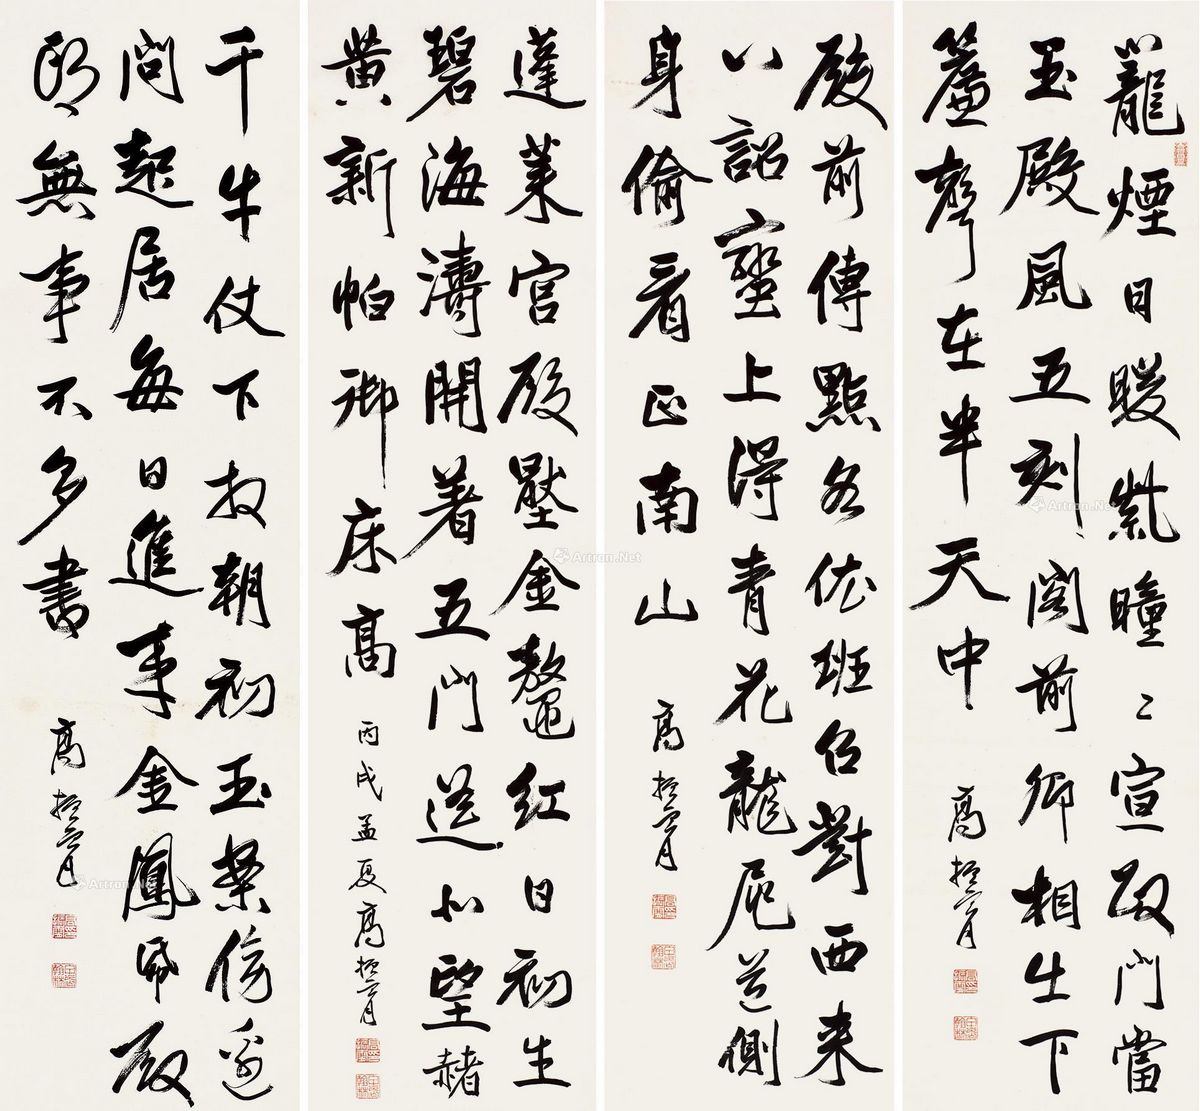 籠煙日暖紫曈〻宣政門當
玉殿風五刻閣前卿相出下
簾聲在半天中
高振霄
殿前傳點各依班召對西来
八詔蠻上得青花龍尾道側
身偷看正南山
高振霄
蓬萊宮殿壓金鰲紅日初生
碧海濤開著五門遙北望赭
黃新帕御床高
丙戌孟夏高振霄
千牛仗下放朝初玉案傍邊
問起居每日進来金鳳帋殿
頭無事不多書
高振霄
Artron.Net
Artron.Net
Artron.Net